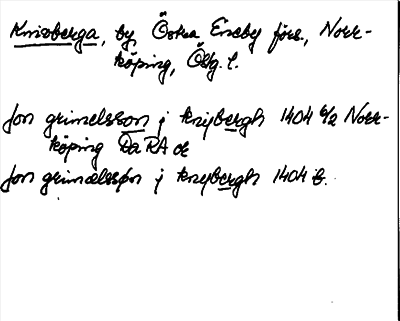 Knivberga, by, Östra Eneby förs., Norr-
köping, Östg. l.
Jon grimelsson j knijbergh 1404 6/2 Norr-
köping Da RA or
Jon grimelsson j knybergh 1404 b.